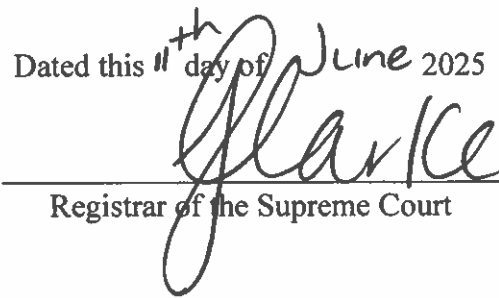 Dated this 11th day of June 2025
Clarke
Registrar of the Supreme Court